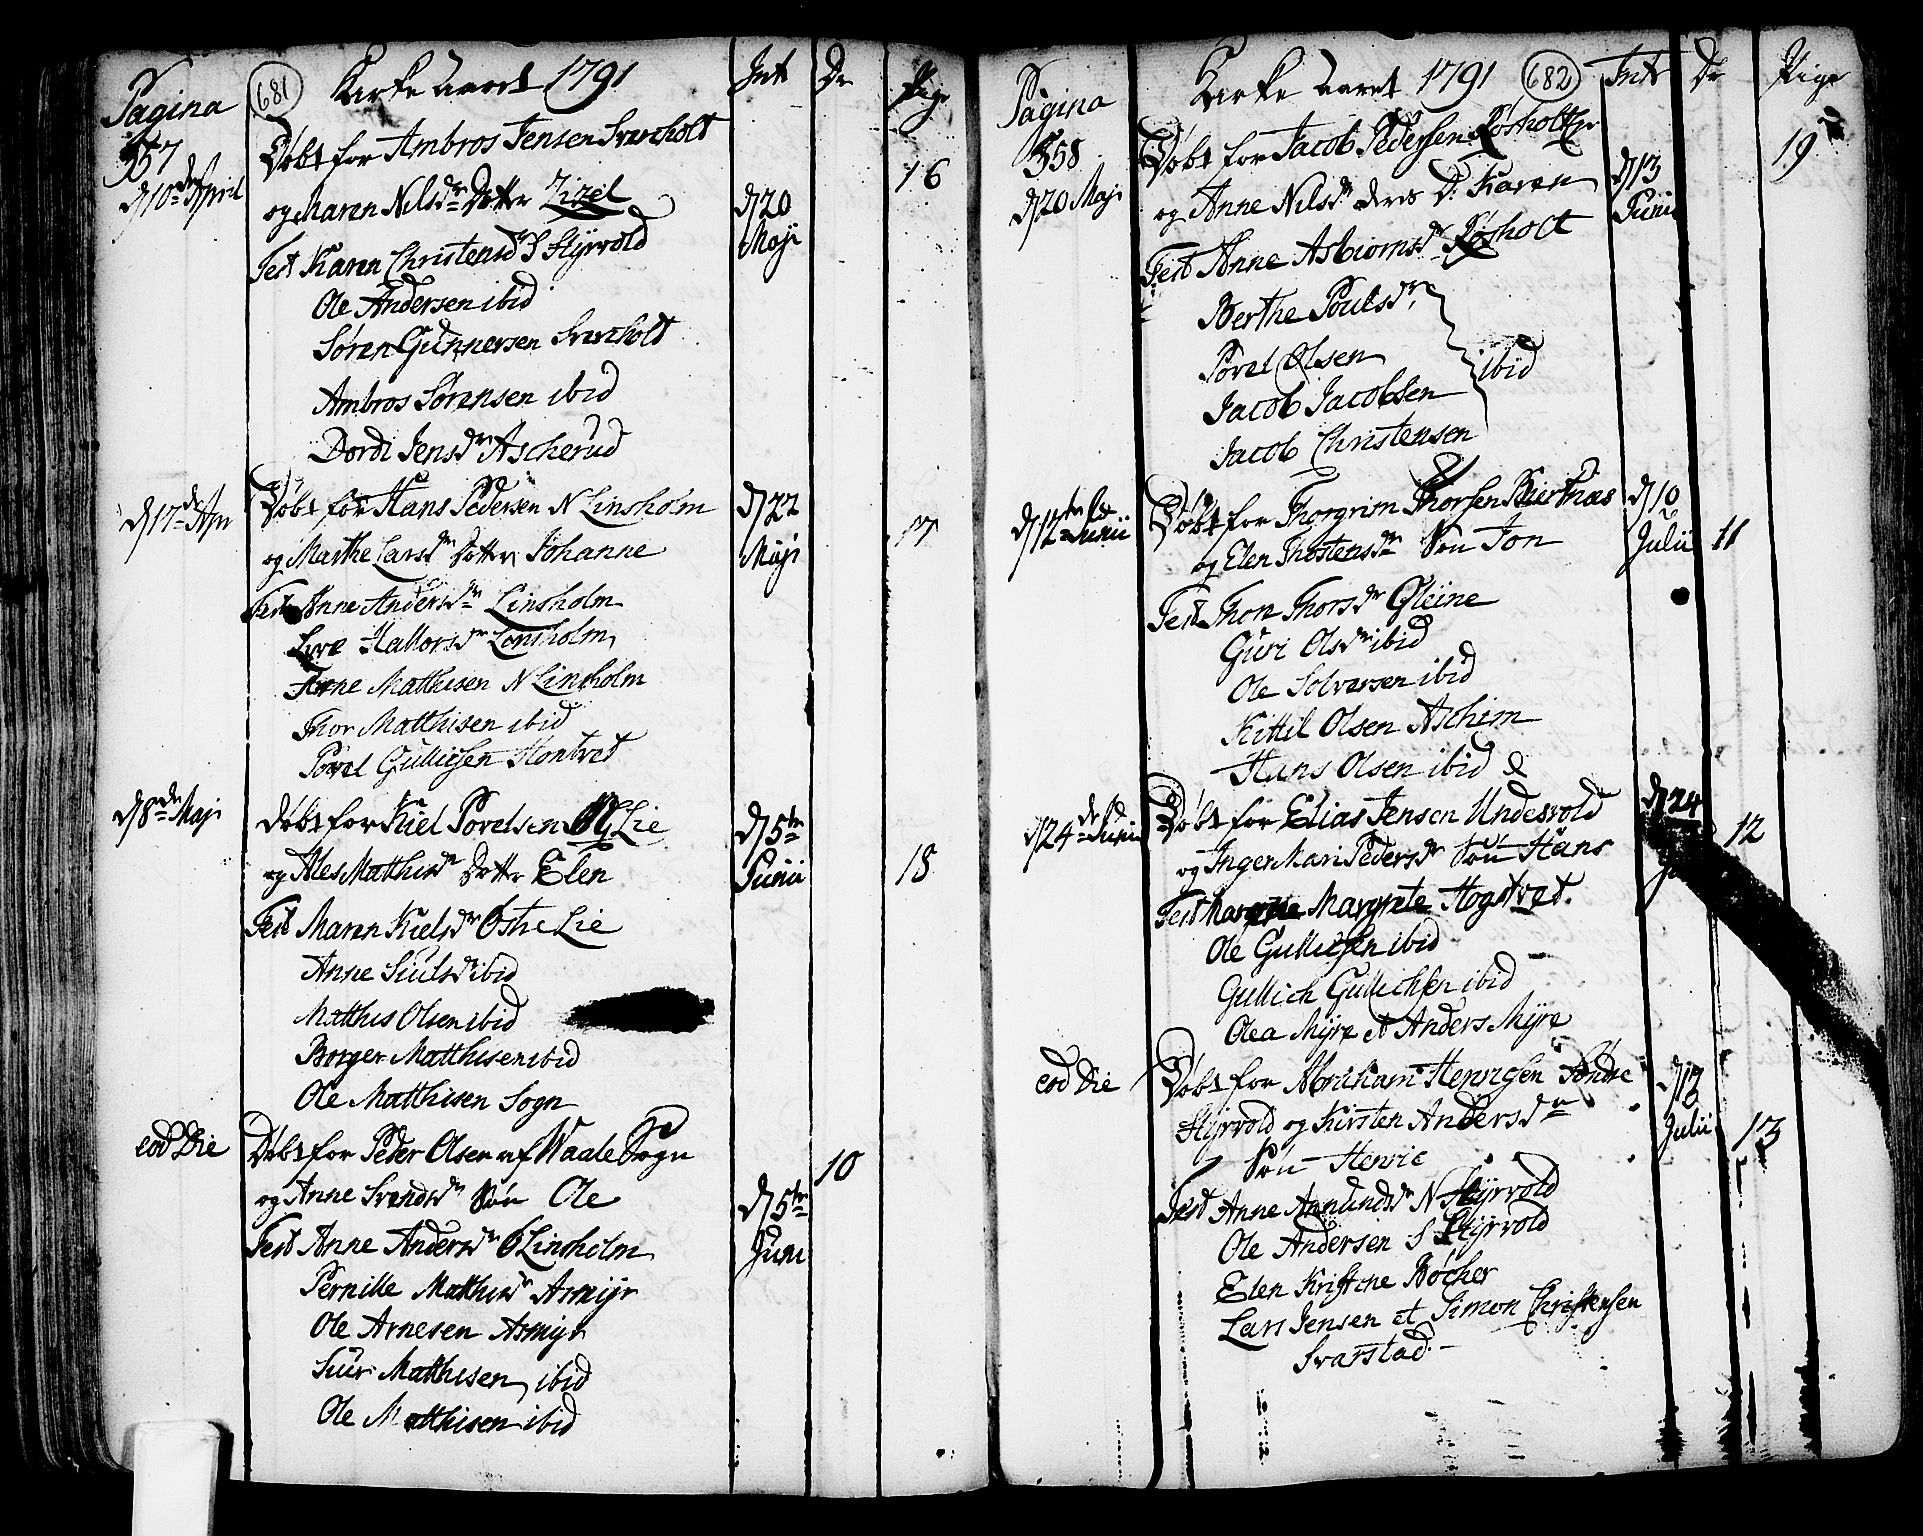 Pagina 557
681
Kirke Aaret 1791
Int
Dr
Pige
d 10de April
Døbt for Ambros Jensen Svenholt
og Maren Nilsdr Dotter Zizel
d 20 Maji
16
Test Karen Christensdr S Styrvold
Ole Andersen ibid
Søren Gunnersen Svenholt
Ambros Sørensen ibid
Dordi Jensdr Ascherud
d 17de Apr
Døbt for Hans Pedersen N Linsholm
og Marthe Larsdr Dotter Johanne
d 22 Maji
17
Test Anne Andersdr Linsholm
Live Hallorsdr Linsholm
Arne Matthisen N Linsholm
Thor Matthisen ibid
Povel Gullichsen Hontvet
d 8de Maji
Døbt for Kiel Povelsen Lie
og Ales Mathisdr Dotter Elen
d 5te Junii
18
Test Maren Kielsdr Østre Lie
Anne Siulsdr ibid
Matthis Olsen ibid
Borger Matthisen ibid
Ole Matthisen Sogn
eod Die
Døbt for Peder Olsen af Waale Sogn
og Anne Svendsdr Søn Ole
d 5te Juni
10
Test Anne Andersdr Ø Linsholm
Pernille Matthisdr Asmyr
Ole Arnesen Asmyr
Siur Matthisen ibid
Ole Matthisen ibid
Pagina 558
Kirke Aaret 1791
682
Int
Dr
Pige
d 20 Maji
Døbt for Jacob Pedersen Røsholt
og Anne Nilsdr deres D. Karen
d 13 Junii
19
Test Anne Asbiornsdr Røsholt
Berthe Poulsdr
Povel Olsen
Jacob Jacobsen
ibid
Jacob Christensen
d 12te Junii
Døbt for Thorgrim Thorsen Biertnæs
og Elen Thostensdr Søn Jon
d 10 Julii
11
Test Thon Thorsdr Gleine
Guri Olsdr ibid
Ole Solversen ibid
Kittil Olsen Aschim
Hans Olsen ibid
d 24de Junii
Døbt for Elias Jensen Undesvold
og Inger Mari Pedersdr Søn Hans
d 24
12
Test Margrete Hogstvet.
Ole Gullichsen ibid
Gullich Gullichsen ibid
Olea Myre et Anders Myre
eod Die
Døbt for Abraham Henrigsen Søndre
Styrvold og Kirsten Andersdr
Søn Henric
Julii
13
Test Anne Amundsdr N Styrvold
Ole Andersen S Styrvold
Elen Kristine Bøcher
Lars Jensen et Simon Christensen
Svarstad